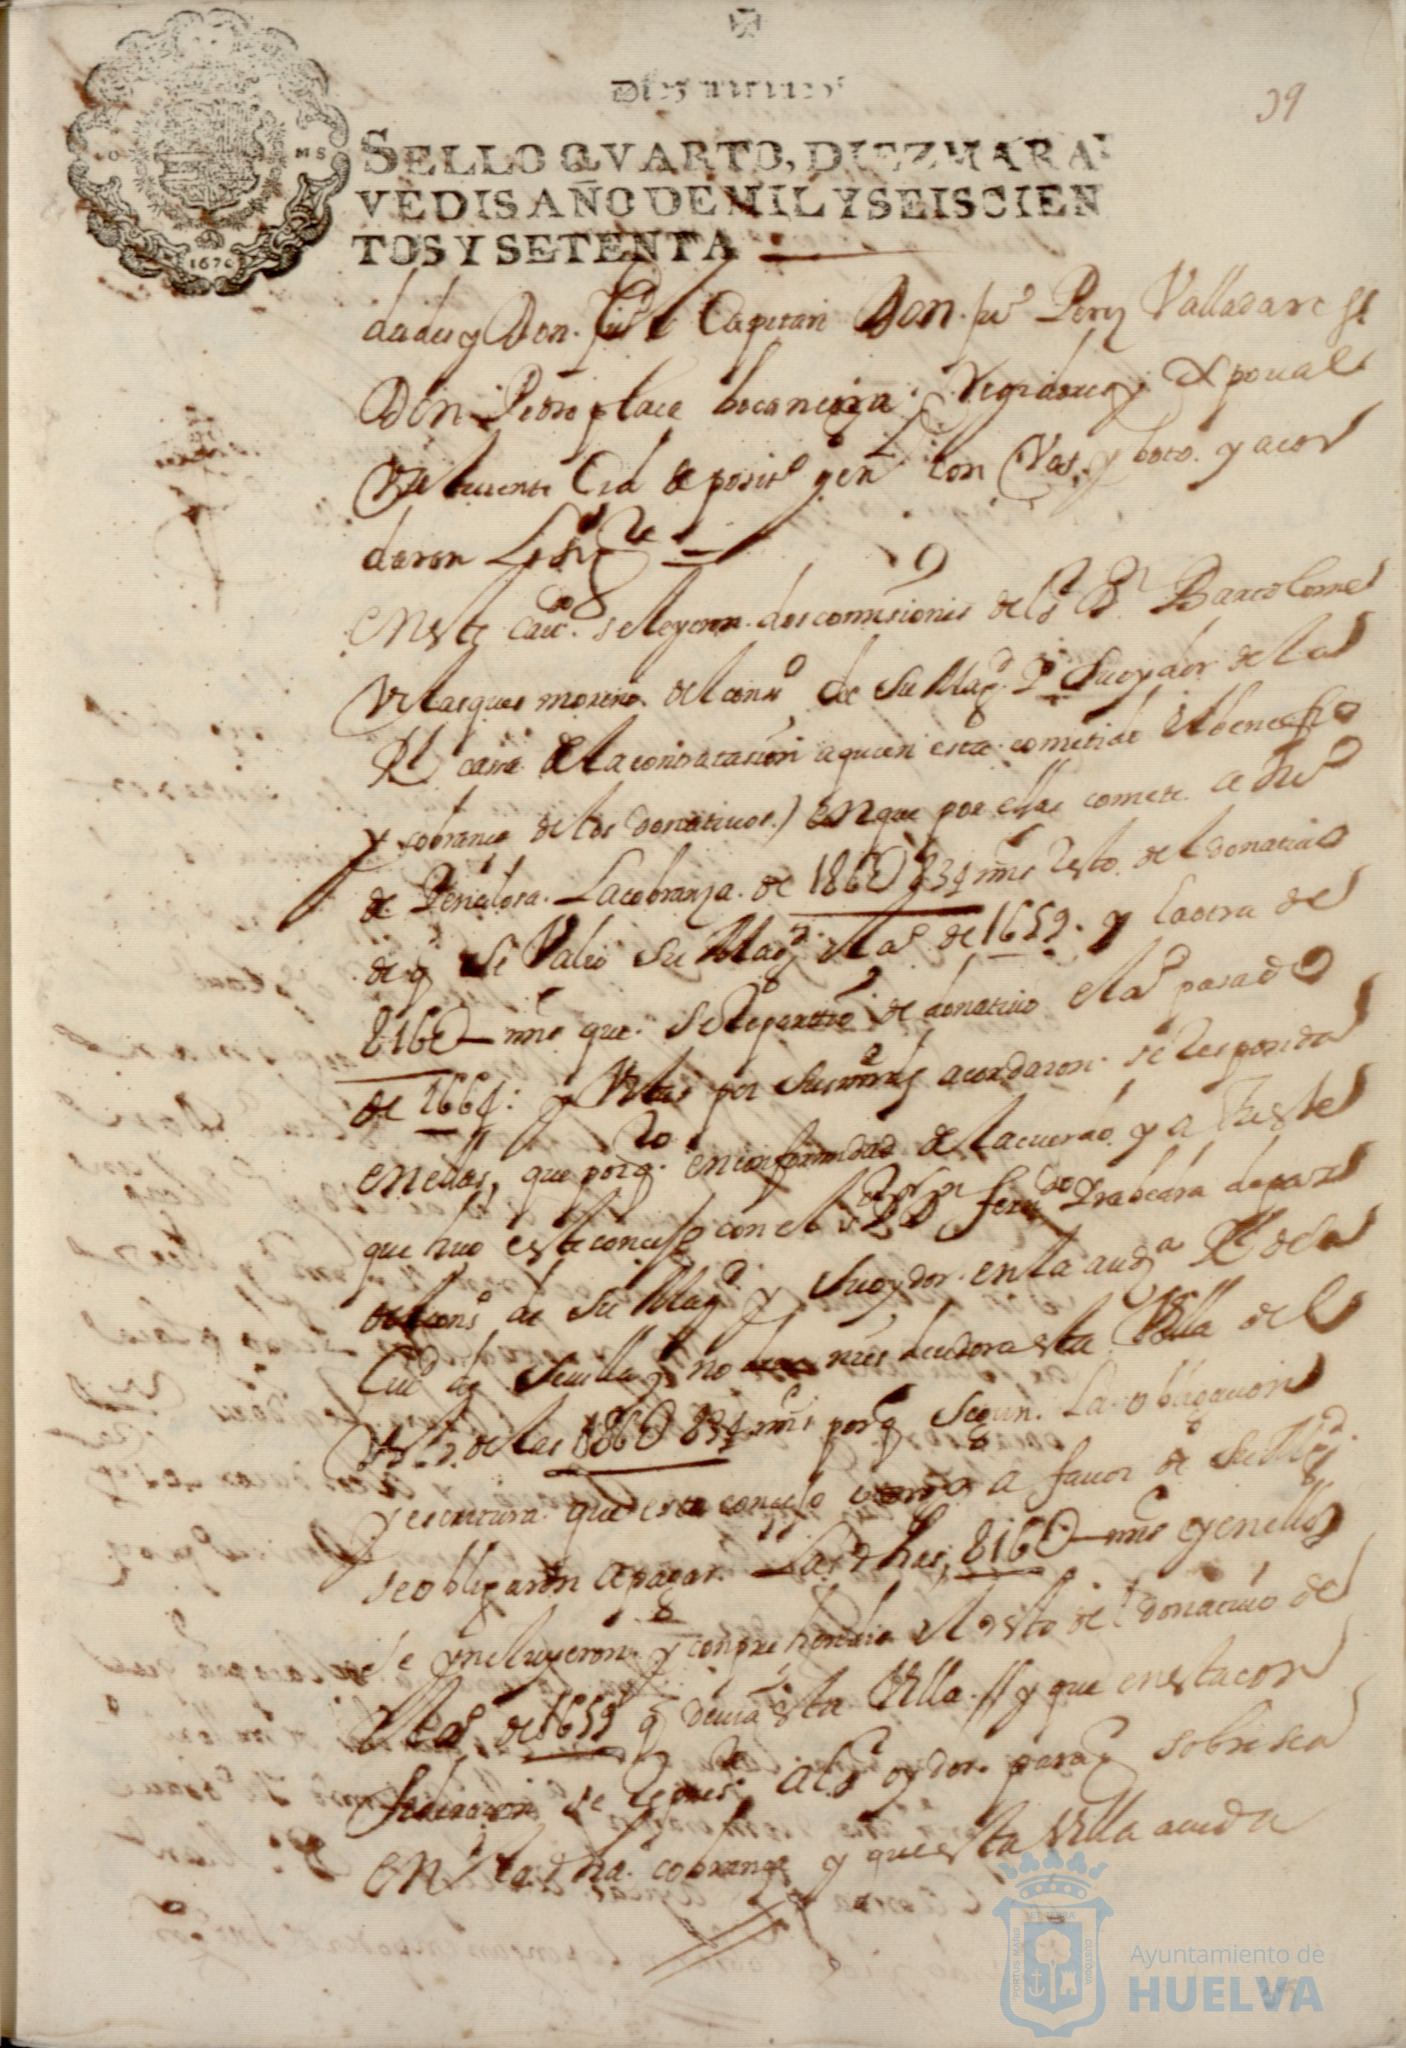 Diez mrs
39
SELLO QVARTO, DIEZ MARA
VEDIS AÑO DE MIL Y SEISCIEN
TOS Y SETENTA
1670
dades y Don Capitan Don Juº Perez Valladares
Don Pedro plaça bocanegra Regidores y
deposº gen con Vos y boto y acor
daron Lo sigte
en este cavº se leyeron dos comisiones del sr Dn Bartolome
Velasques moreno del consº de Su Magd Su oydor de la
Rl casa de la contratasion a quien esta cometido el benefiº
y cobranca de los donativos) en que por ellas comete a
de Peñalosa La cobranza de 186U834 mrs resto del donativo
de q Se Valio Su Magd el aº de 1659 y la otra de
816U— mrs que se le repartio de donativo el aº pasado
de 1664 y Vistas por Sus mrds acordaron se responda
en ellas, que por q en conformidad del acuerdo y a Juste
que hiço este concejo con el sr Dn ferdo
del consº de Su Magd y Su oydor en la auda Rl de la
Ciud de Sevilla no es deudora esta Villa del
de las 186U834 mrs porq Segun La obligacion
y escritura que este concejo otorgo a favor de Su Magd
se obligaron a pagar Las dhas 816U— mrs y en ellos
se yncluyeron y conprehendio el resto del donativo de
el aº de 1659 q devia esta Villa // y que en esta con
sideracion se represte al sr oydor para q sobresea
en la dha cobranza y que esta Villa acuda
PORTUS MARIS
CUSTODIA
Ayuntamiento de
HUELVA